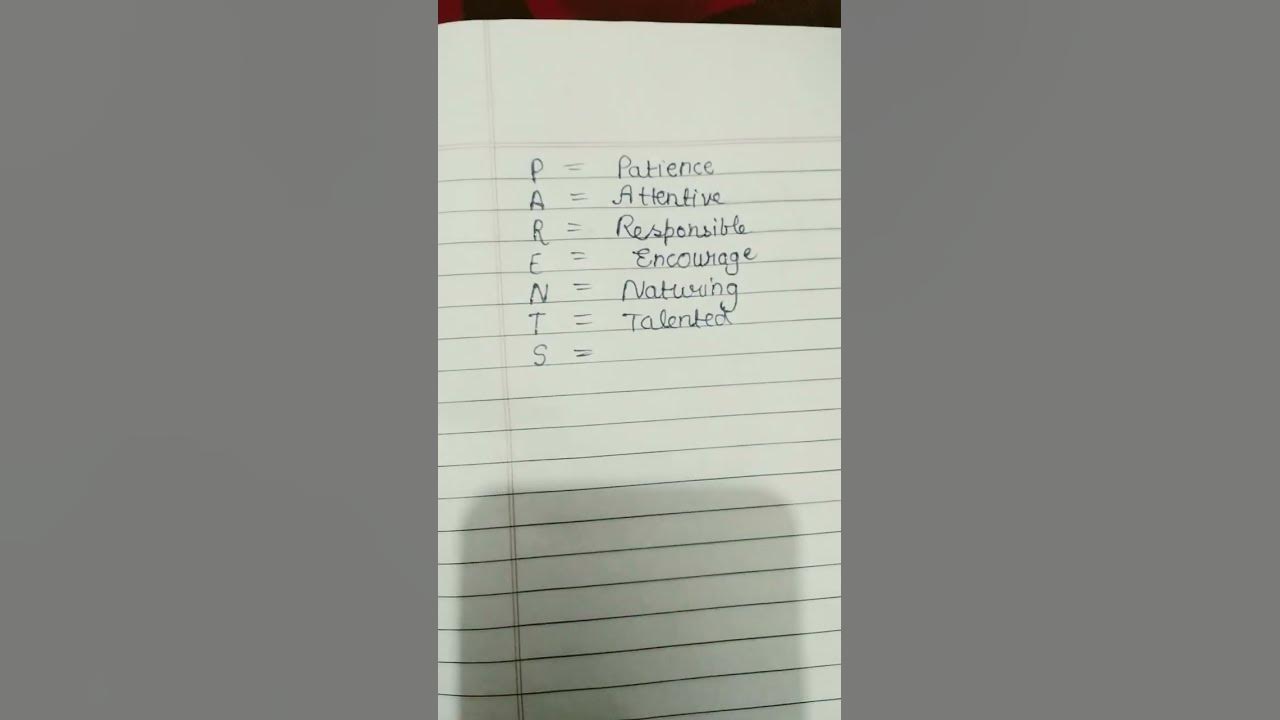 P = Patience
A = Attentive
R = Responsible
E = Encourage
N = Naturing
T = Talented
S =